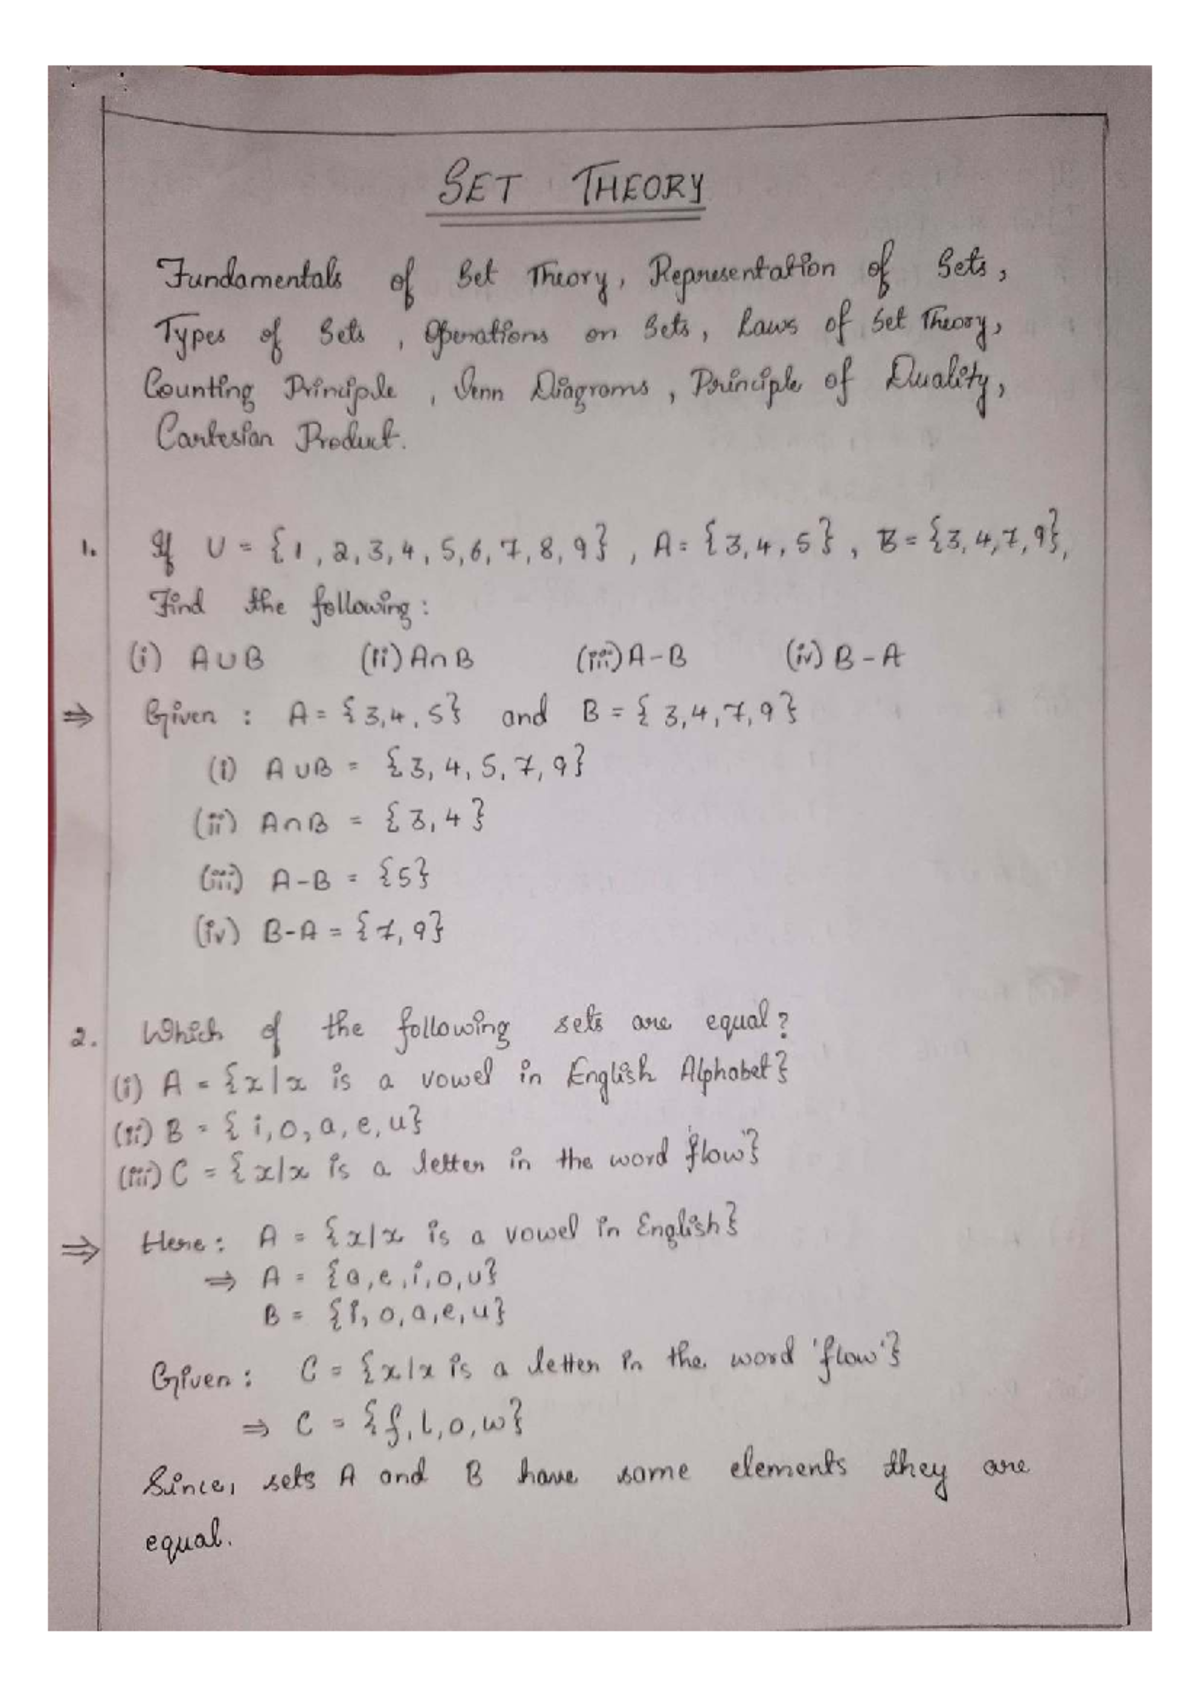 SET THEORY
Fundamentals of Set Theory, Representation of Sets,
Types of Sets, Operations on Sets, Laws of Set Theory,
Counting Principle, Venn Diagrams, Principle of Duality,
Cartesian Product.
1. If U = {1, 2, 3, 4, 5, 6, 7, 8, 9}, A = {3, 4, 5}, B = {3, 4, 7, 9},
Find the following:
(i) A∪B (ii) A∩B (iii) A-B (iv) B-A
⇒ Given: A = {3, 4, 5} and B = {3, 4, 7, 9}
(i) A∪B = {3, 4, 5, 7, 9}
(ii) A∩B = {3, 4}
(iii) A-B = {5}
(iv) B-A = {7, 9}
2. Which of the following sets are equal?
(i) A = {x|x is a vowel in English Alphabet}
(ii) B = {i, o, a, e, u}
(iii) C = {x|x is a letter in the word 'flow'}
⇒ Here: A = {x|x is a vowel in English}
⇒ A = {a, e, i, o, u}
B = {i, o, a, e, u}
Given: C = {x|x is a letter in the word 'flow'}
⇒ C = {f, l, o, w}
Since, sets A and B have same elements they are
equal.